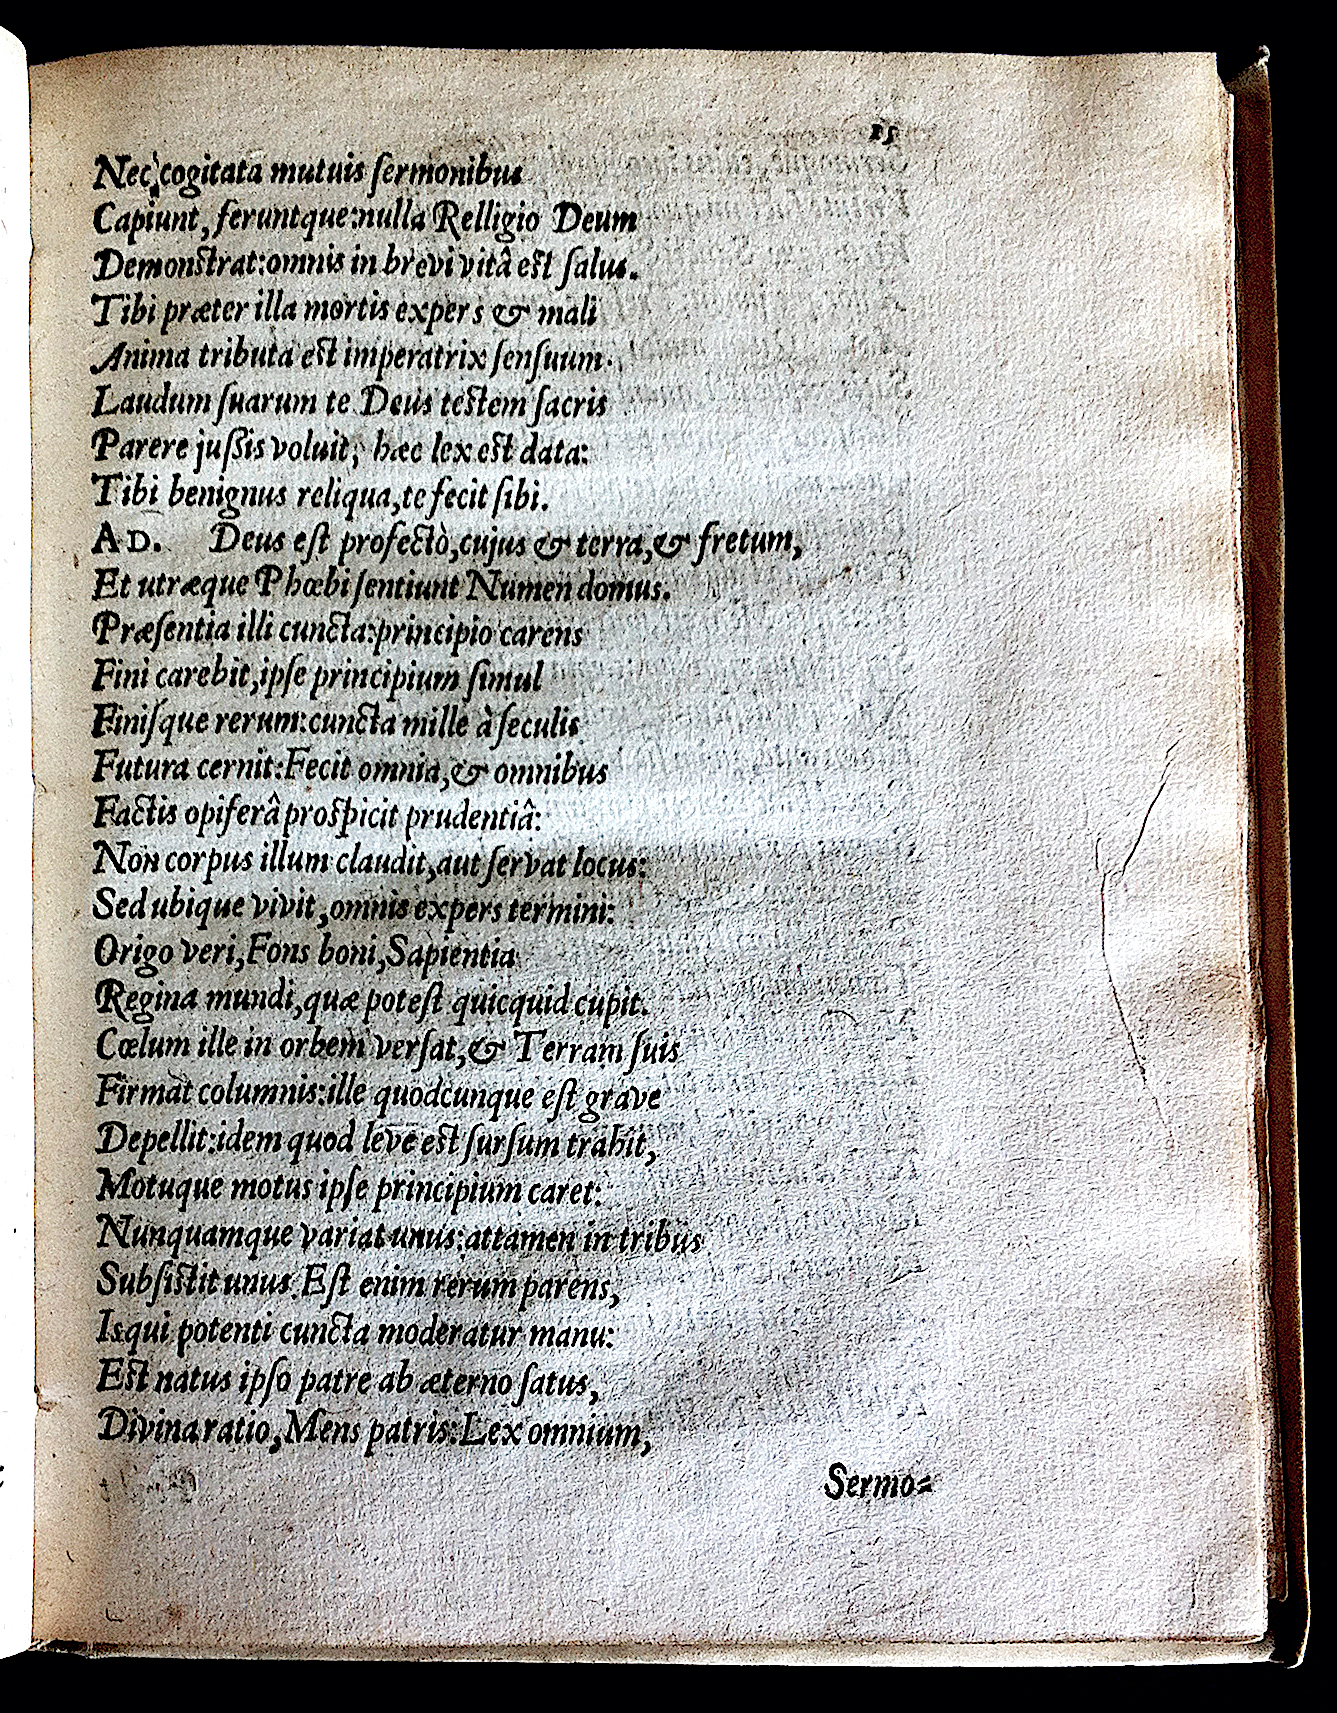 15
Nec cogitata mutuis ſermonibus
Capiunt, feruntque: nulla Relligio Deum
Demonſtrat: omnis in brevi vitâ eſt ſalus.
Tibi præter illa mortis expers & mali
Anima tributa eſt imperatrix ſenſuum.
Laudum ſuarum te Deus teſtem ſacris
Parere juſsis voluit; hæc lex eſt data:
Tibi benignus reliqua, te fecit ſibi.
AD. Deus eſt profectò, cujus & terra, & fretum,
Et utræque Phœbi ſentiunt Numen domus.
Præſentia illi cuncta: principio carens
Fini carebit, ipſe principium ſimul
Finiſque rerum: cuncta mille à ſeculis
Futura cernit: Fecit omnia, & omnibus
Factis opiferâ proſpicit prudentiâ:
Non corpus illum claudit, aut ſervat locus:
Sed ubique vivit, omnis expers termini:
Origo veri, Fons boni, Sapientia
Regina mundi, quæ poteſt quicquid cupit.
Cœlum ille in orbem verſat, & Terram ſuis
Firmat columnis: ille quodcunque eſt grave
Depellit: idem quod leve eſt ſurſum trahit,
Motuque motus ipſe principium caret:
Nunquamque variat unus: attamen in tribus
Subſiſtit unus. Eſt enim rerum parens,
Is qui potenti cuncta moderatur manu:
Eſt natus ipſo patre ab æterno ſatus,
Divina ratio, Mens patris: Lex omnium,
Sermo-